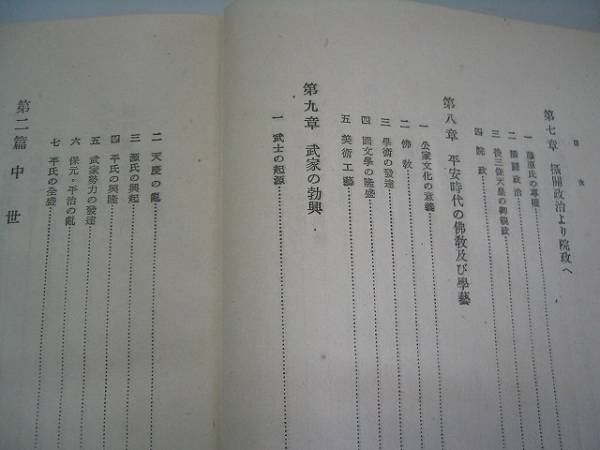 目次
第七章 攝關政治より院政へ
一 藤原氏の專權
二 攝關政治
三 後三條天皇の御親政
四 院政
第八章 平安時代の佛敎及び學藝
一 公家文化の意義
二 佛敎
三 學術の發達
四 國文學の隆盛
五 美術工藝
第九章 武家の勃興
一 武士の起源
二 天慶の亂
三 源氏の興起
四 平氏の興隆
五 武家勢力の發達
六 保元・平治の亂
七 平氏の全盛
第二篇 中世